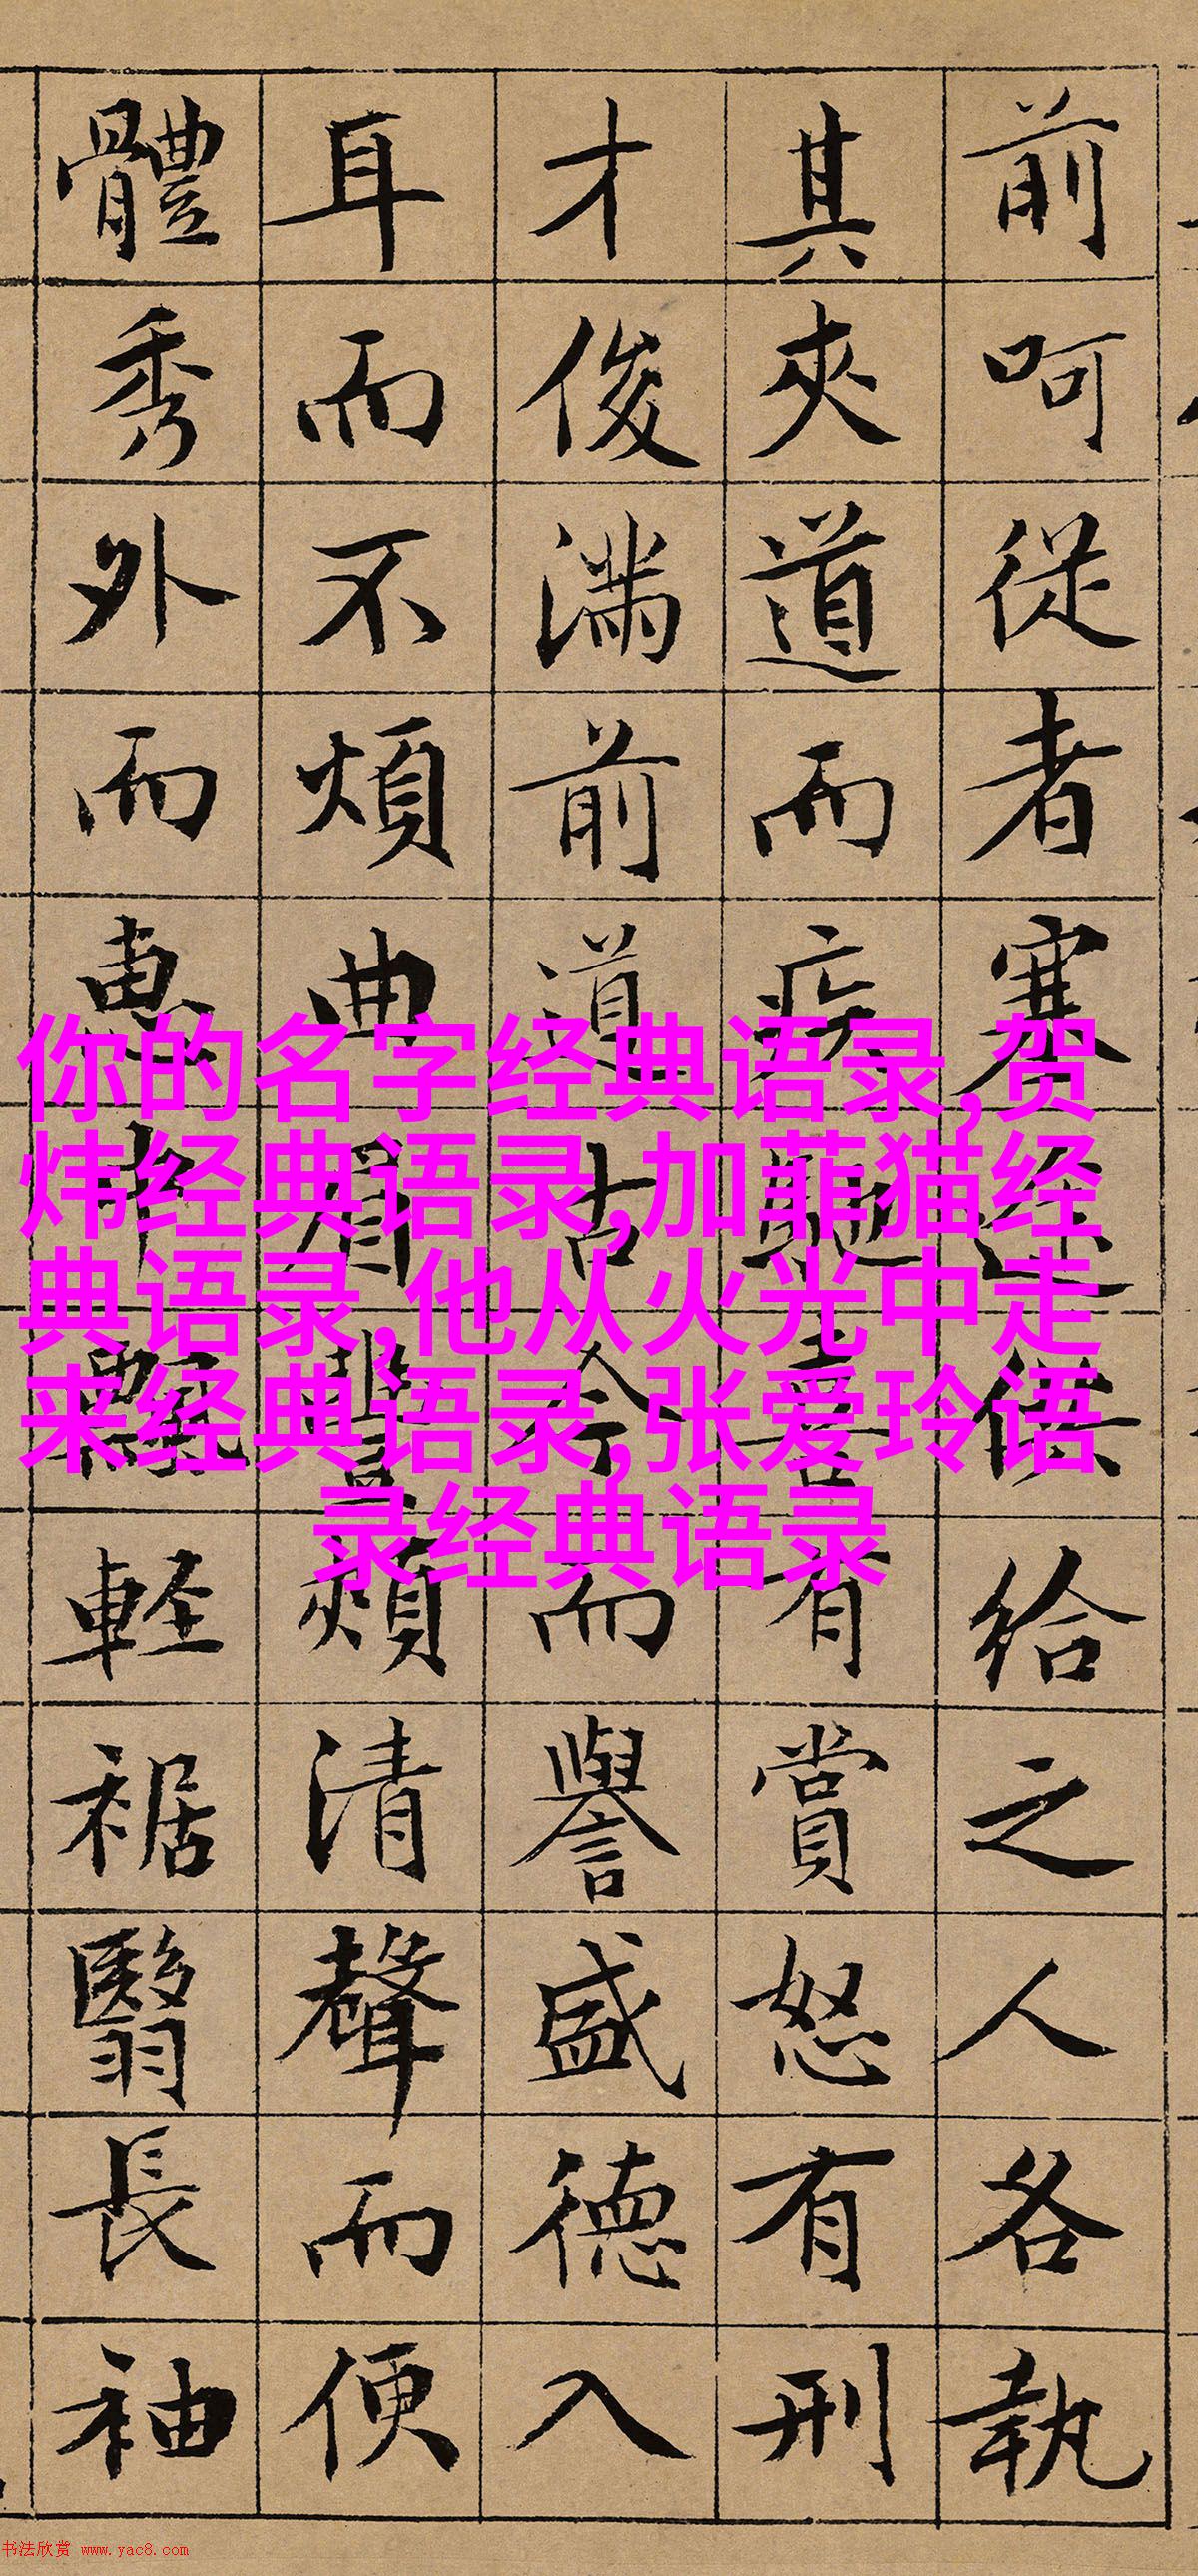 前呵從者塞途供給之人各執
其夾道而疾馳喜有賞怒有刑
才俊满前道古今而譽盛德入
耳而不煩曲眉豐頰清聲而便
體秀外而惠中飄軽裾翳長袖
你的名字经典语录,贺
炜经典语录,加菲猫经
典语录,他从火光中走
来经典语录,张爱玲语
录经典语录
书法欣赏 www.yac8.com